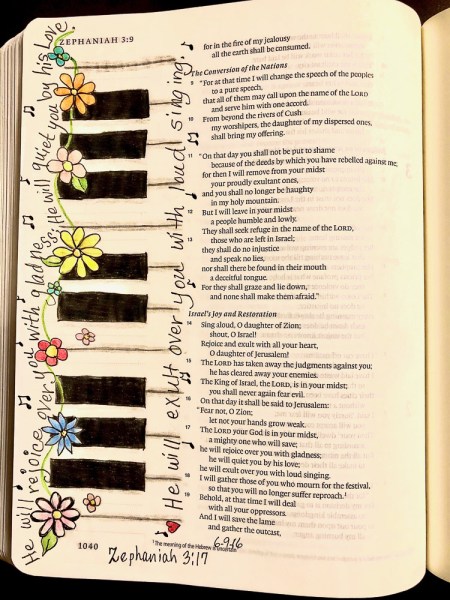 ZEPHANIAH 3:9
He will rejoice over you with gladness. He will quiet you by his Love.
He will exult over you with loud singing.
for in the fire of my jealousy
all the earth shall be consumed.
The Conversion of the Nations
9 “For at that time I will change the speech of the peoples
to a pure speech,
that all of them may call upon the name of the LORD
and serve him with one accord.
10 From beyond the rivers of Cush
my worshipers, the daughter of my dispersed ones,
shall bring my offering.
11 “On that day you shall not be put to shame
because of the deeds by which you have rebelled against me;
for then I will remove from your midst
your proudly exultant ones,
and you shall no longer be haughty
in my holy mountain.
12 But I will leave in your midst
a people humble and lowly.
They shall seek refuge in the name of the LORD,
13 those who are left in Israel;
they shall do no injustice
and speak no lies,
nor shall there be found in their mouth
a deceitful tongue.
For they shall graze and lie down,
and none shall make them afraid.”
Israel's Joy and Restoration
14 Sing aloud, O daughter of Zion;
shout, O Israel!
Rejoice and exult with all your heart,
O daughter of Jerusalem!
15 The LORD has taken away the judgments against you;
he has cleared away your enemies.
The King of Israel, the LORD, is in your midst;
you shall never again fear evil.
16 On that day it shall be said to Jerusalem:
“Fear not, O Zion;
let not your hands grow weak.
17 The LORD your God is in your midst,
a mighty one who will save;
he will rejoice over you with gladness;
he will quiet you by his love;
he will exult over you with loud singing.
18 I will gather those of you who mourn for the festival,
so that you will no longer suffer reproach.1
19 Behold, at that time I will deal
with all your oppressors.
And I will save the lame
and gather the outcast,
1 The meaning of the Hebrew is uncertain
1040
6-9-16
Zephaniah 3:17